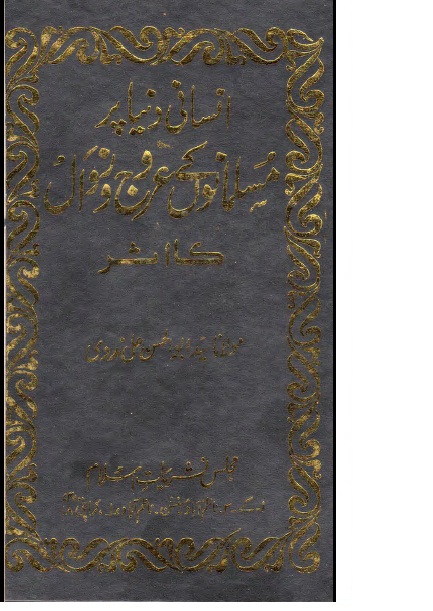 انسانی دنیا پر
مسلمانوں کے عروج و زوال
کا اثر
مولانا سید ابوالحسن علی ندوی
مجلس نشریات اسلام